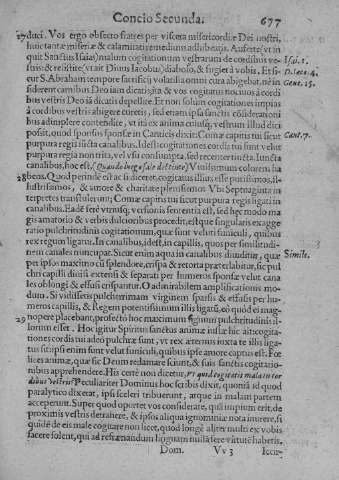 Concio Secunda. 677
27 duci. Vos ergo obsecro fratres per viscera misericordiæ Dei nostri,
huic tantæ miseriæ & calamitati remedium adhibeatis. Auferte (vt in
quit Sanctus Isaias) malum cogitationum vestrarum de cordibus ve- Isai. 1.
stris: & resistite (vt ait Diuus Iacobus) diabolo, & fugiet à vobis. Et si- D. Iaco. 4.
cut S. Abraham tempore sacrificij volatilia omni cura abigebat, né in Gene. 15.
siderent carnibus Deo iam dicatis, ita & vos cogitatus nocuos à cordi
bus vestris Deo iã dicatis depellite. Et non solùm cogitationes impias
à cordibus vestris abigere curetis, sed etiam ipsa sanctis cõsiderationi
bus adimplere contendite, vt ita ex anima cuiusq; vestrum illud dici
possit, quod sponsus sponsæ in Canticis dixit: Comæ capitis tui sicut Cant. 7.
purpura regis iuncta canalibus. Idest, cogitationes cordis tui sunt velut
purpura regia non trita, vel vsu consumpta, sed recenter tincta. Iuncta
canalibus, hoc est
28 bens. Quod perinde est ac si diceret, cogitatus illius esse purissimos, il-
lustrissimos, & amore & charitate plenissimos. Vbi Septuaginta in
terpretes transtulerunt; Comæ capitis tui sicut purpura regis ligati in
canalibus. Eadẽ ferè vtriusq; versionis sententia est, sed hęc modo ma
gis amatorio & verbis dulcoribus procedit, estque singularis exagge
ratio pulchritudinis cogitationum, quæ sunt veluti funiculi, quibus
rex regum ligatus. In canalibus, idest, in capillis, quos per similitudi-
nem canales nuncupat. Sicut enim aqua in canalibus diuiditur, quæ Simile.
per ipsos maximo cũ splendore, crispa & retorta præterlabitur, sic pul
chri capilli diuisi extensi & separati per humeros sponsæ velut cana
les oblongi & effusi crispantur. O admirabilem amplificationis mo-
dum. Si vidisses pulcherrimam virginem sparsis & effusis per hu-
meros capillis, & Regem potentissimum illis ligatũ, eò quòd ei mag-
29 nopere placebant, profectò hoc maximum signum pulchritudinis il-
lorum esset. Hoc igitur Spiritus sanctus animæ iustæ hic ait: cogita-
tiones cordis tui adeò pulchræ sunt, vt rex æternus iuxta te illis liga-
tus sit: ipsi enim sunt velut funiculi, quibus ipse amore captus est. Fœ
lices animæ, quæ sic Deum redamare sciunt, & suis sanctis cogitatio-
nibus apprehendere. His certè non dicetur,
Peculiariter Dominus hoc scribis dixit, quoniã id quod
paralytico dixerat, ipsi sceleri tribuerant, atque in malam partem
acceperunt. Super quod oportet vos considerate, quã impium erit, de
proximis vestris detrahere, & ipsos aliqua ignominiæ nota inurere, si
quidẽ de eis malè cogitare non licet, quod longè aliter multi ex vobis
facere solent, qui ad refrænandum
Dom. Vv 3